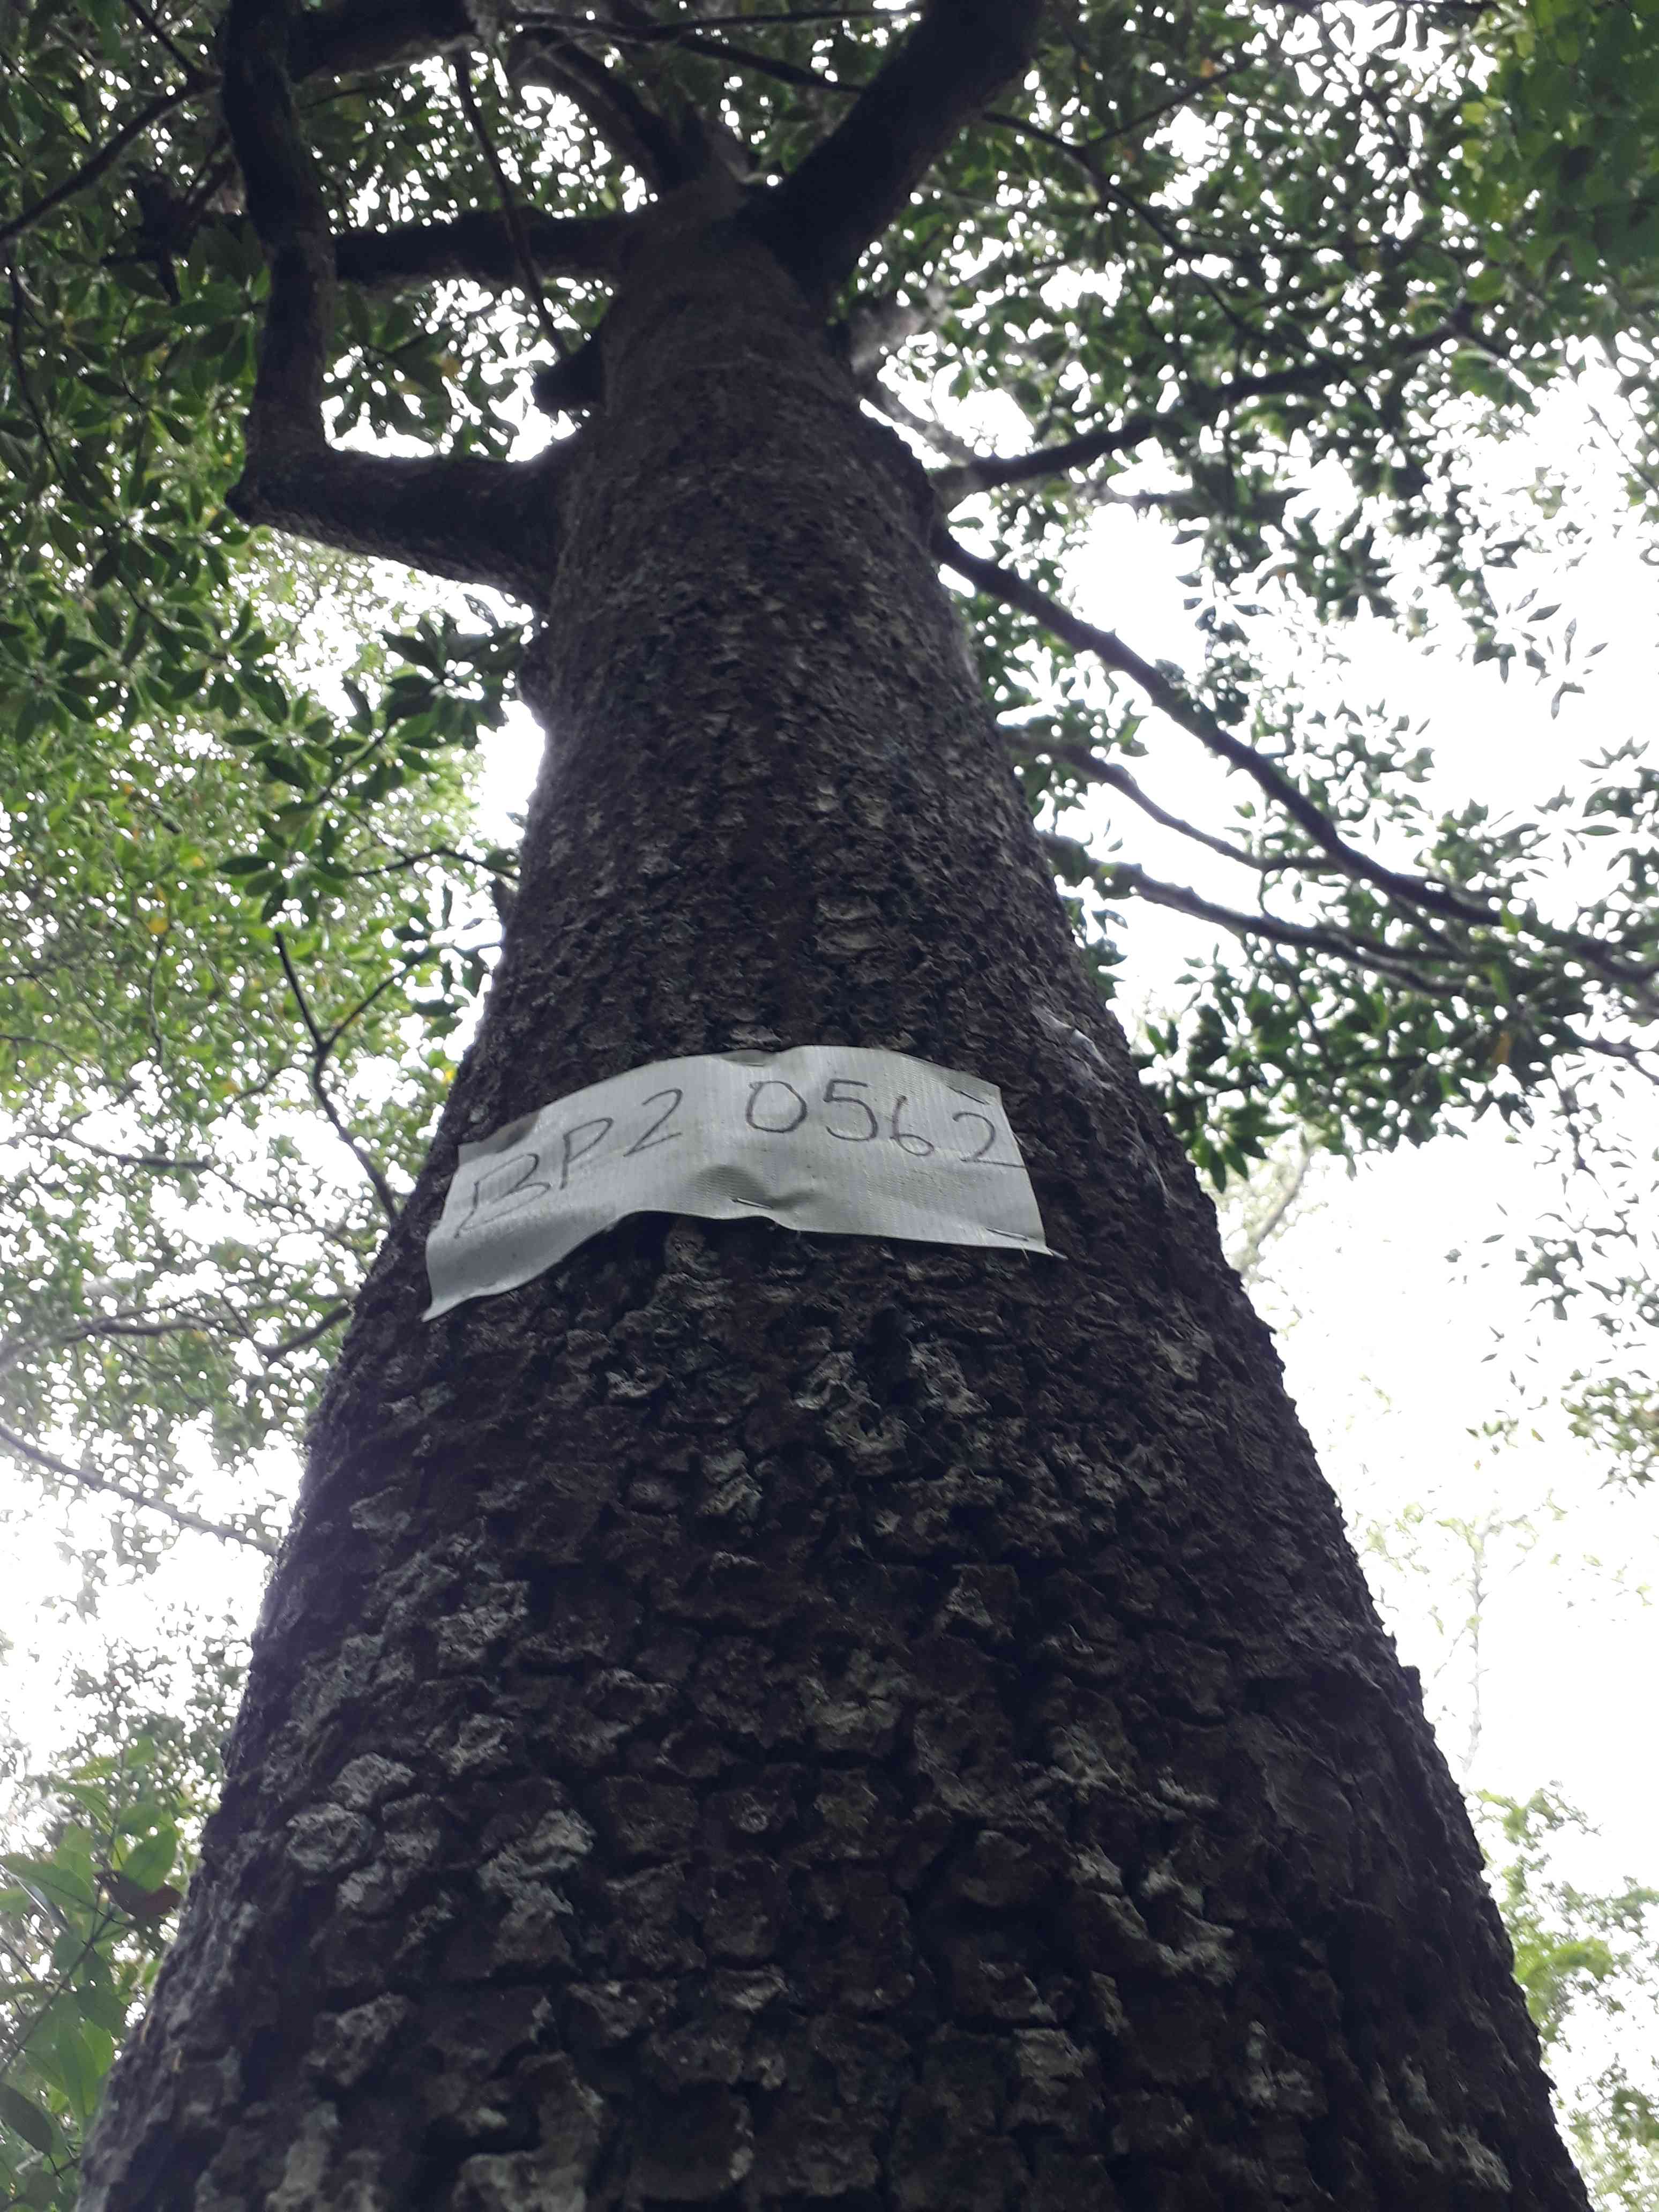 BP2 0562